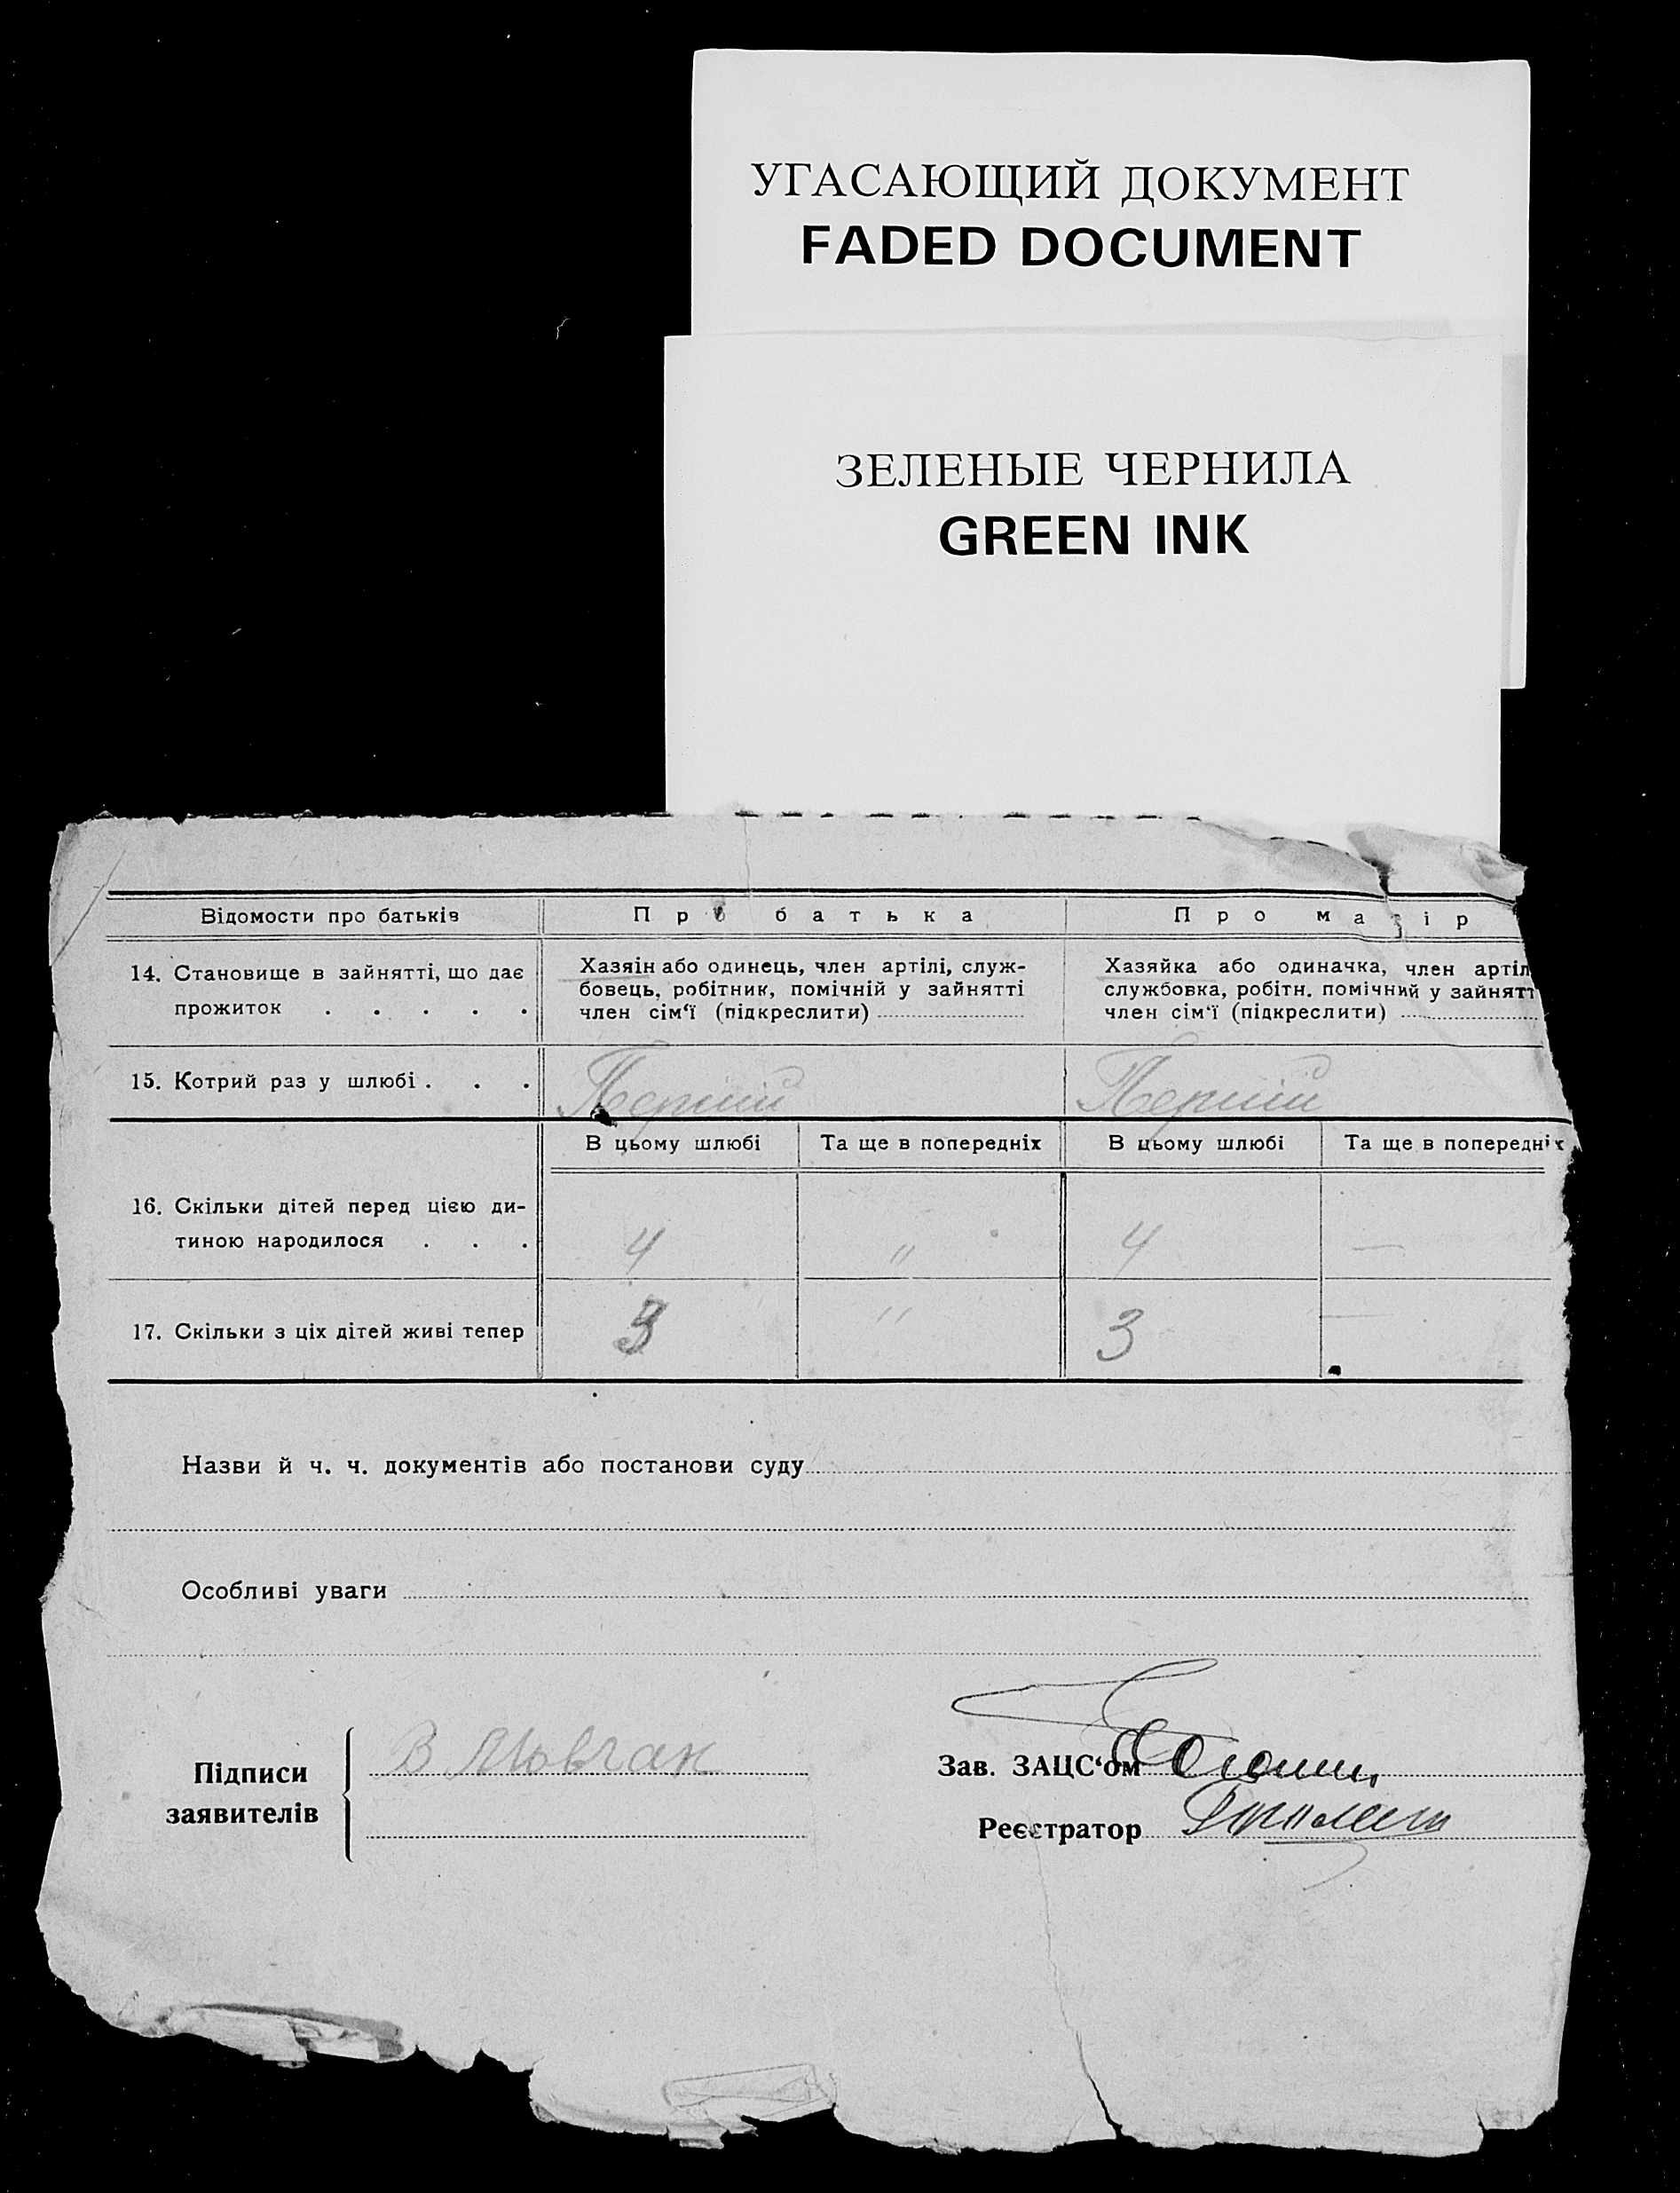 УГАСАЮЩИЙ ДОКУМЕНТ
FADED DOCUMENT
ЗЕЛЕНЫЕ ЧЕРНИЛА
GREEN INK
Відомости про батьків
Про батька
Про матір
14. Становище в зайнятті, що дає
прожиток . . . . .
Хазяін або одинець, член артілі, служ-
бовець, робітник, помічній у зайнятті
член сім‘ї (підкреслити)
Хазяйка або одиначка, член артіл
службовка, робітн. помічний у зайнятт
член сім‘ї (підкреслити)
15. Котрий раз у шлюбі . . .
Перший
Перший
В цьому шлюбі
Та ще в попередніх
В цьому шлюбі
Та ще в попередніх
16. Скільки дітей перед цією ди-
тиною народилося . . .
4
"
4
—
17. Скільки з ціх дітей живі тепер
3
"
3
—
Назви й ч. ч. документів або постанови суду
Особливі уваги
Підписи
заявителів
В Мовчан
Зав. ЗАЦС‘ом
Реєстратор